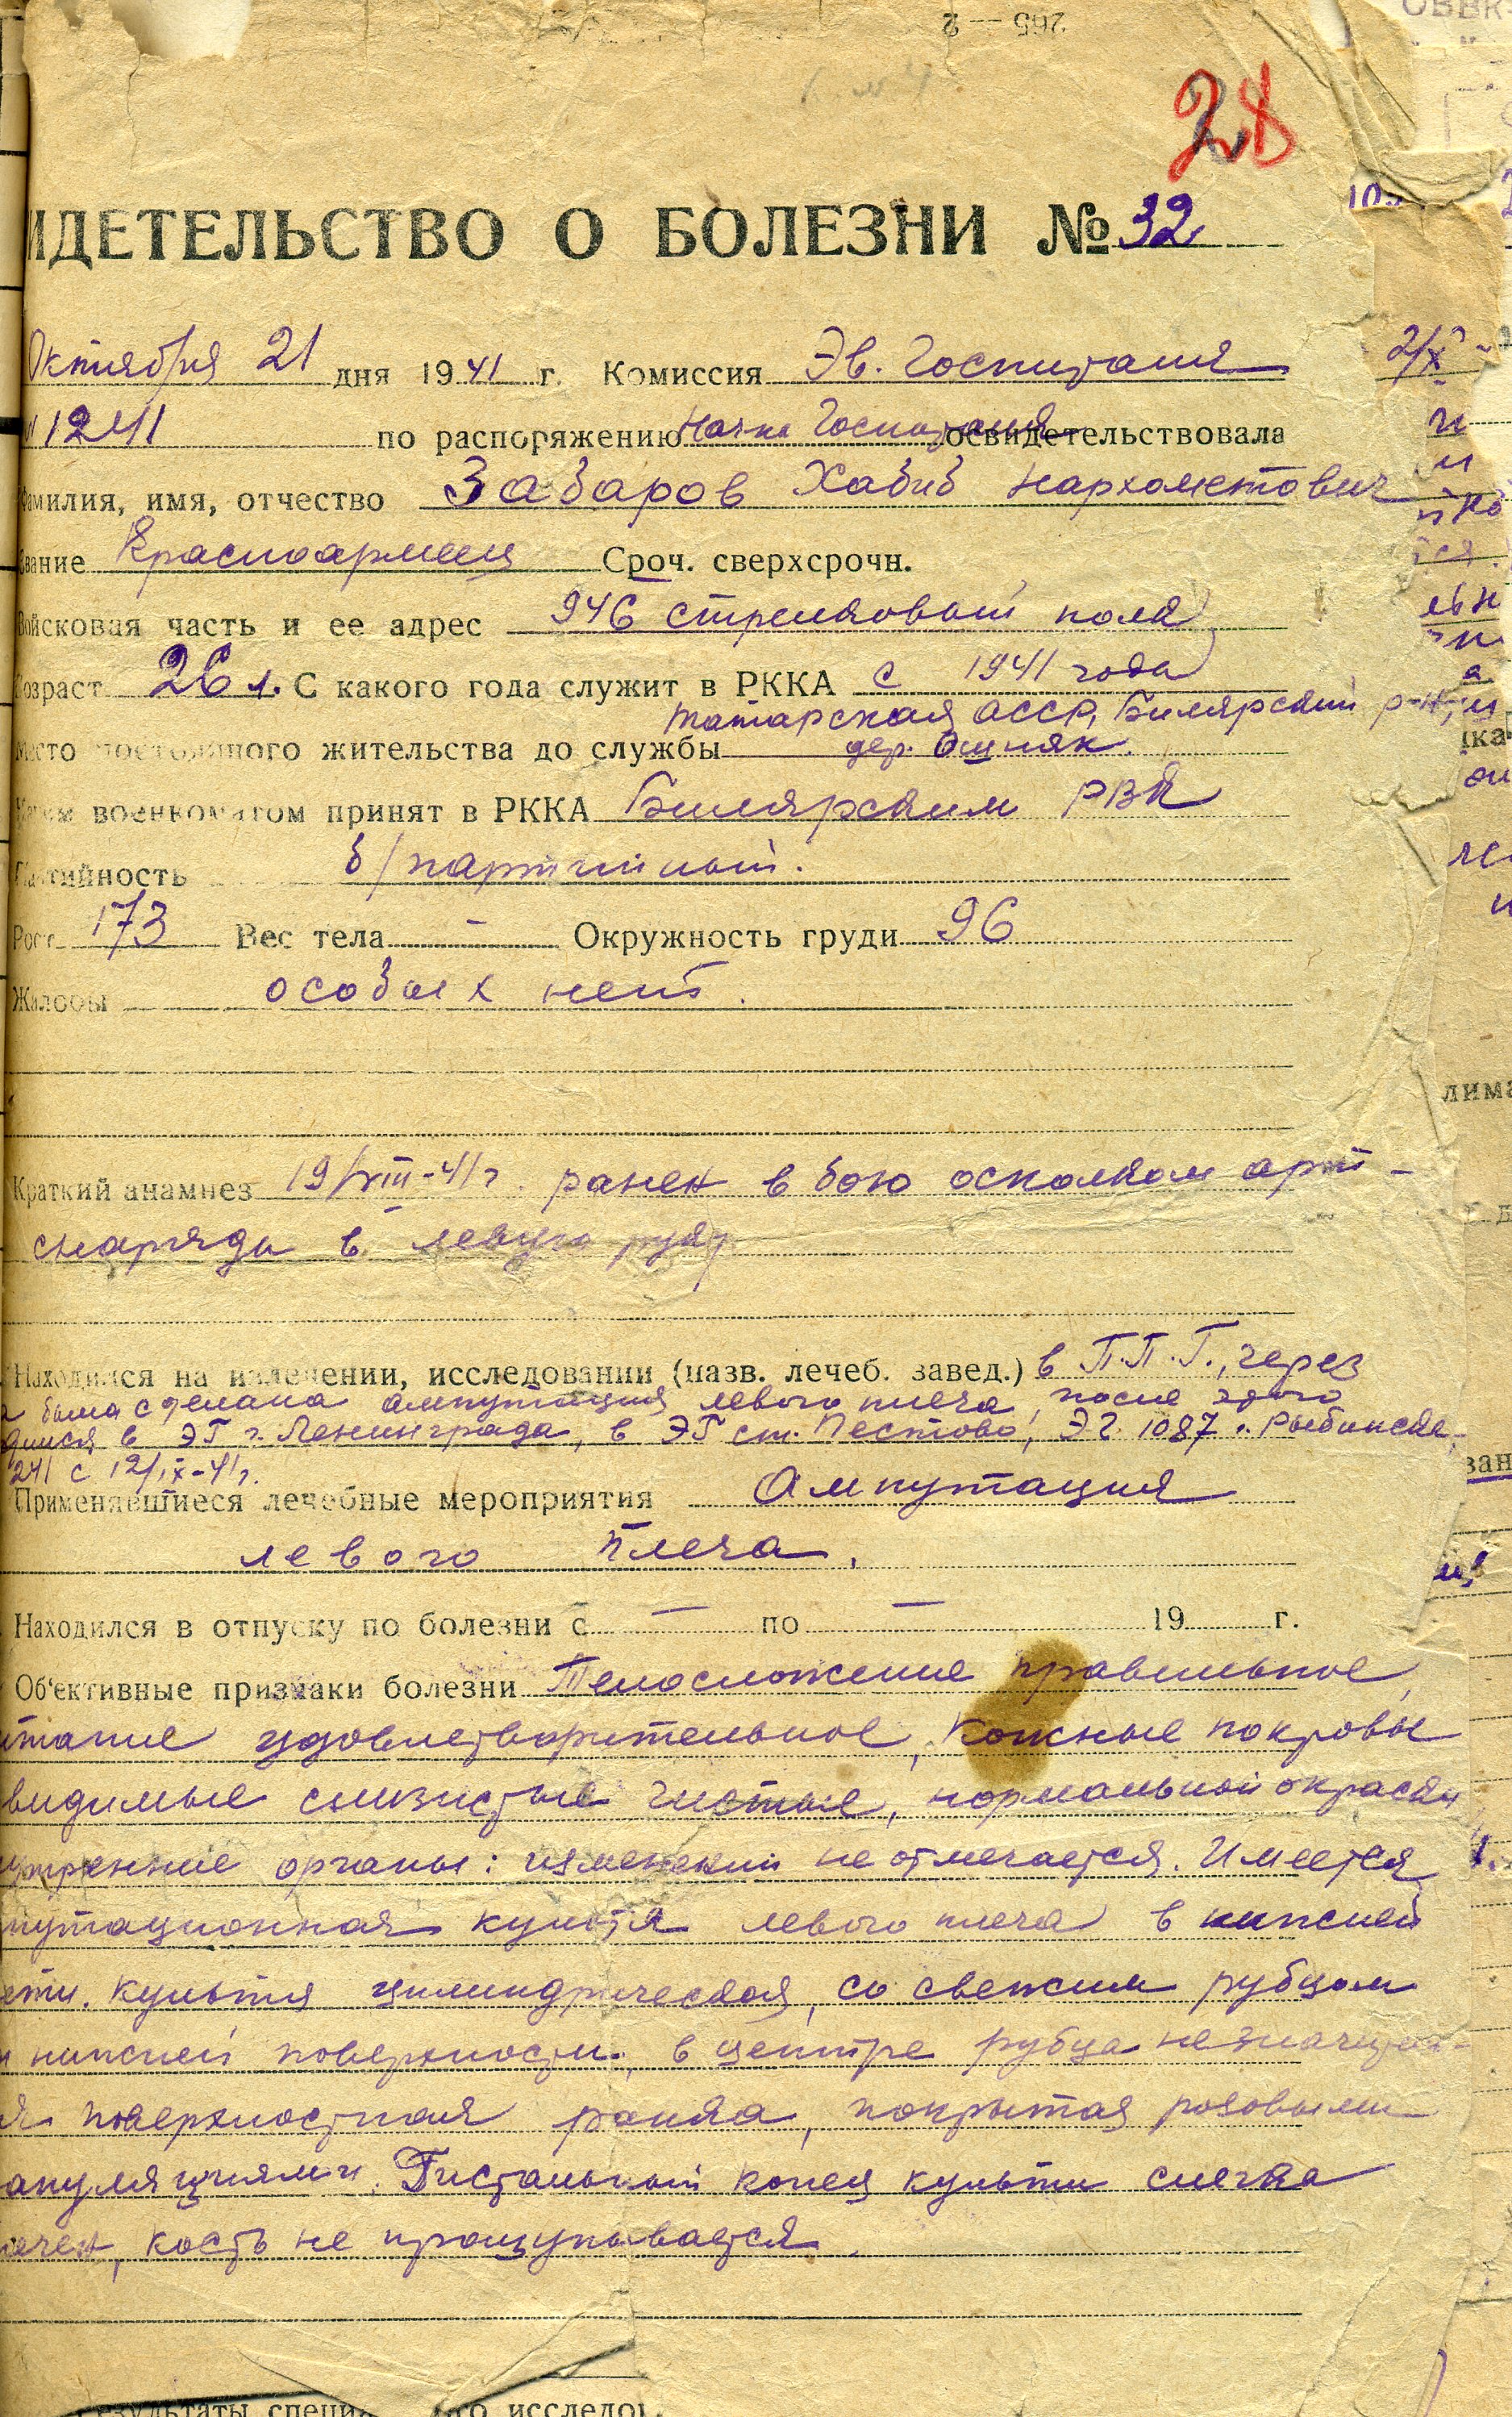 265 — 2
28
ИДЕТЕЛЬСТВО О БОЛЕЗНИ № 32
Октября 21 дня 1941 г. Комиссия Эв. Госпиталя
1241 по распоряжению Нач-ка Госпиталя освидетельствовала
Фамилия, имя, отчество Забаров Хабиб Нархаметович
Звание Красноармеец Сроч. сверхсрочн.
Войсковая часть и ее адрес 946 стрелковый полк
Возраст 26 л. С какого года служит в РККА с 1941 года
Татарская АССР, Билярский р-н,
место постоянного жительства до службы дер. Ошняк.
Каким военкоматом принят в РККА Билярским РВК
Партийность б/партийный.
Рост 173 Вес тела — Окружность груди 96
Жалобы особых нет.
Краткий анамнез 19/VIII-41 г. ранен в бою осколком арт-
снаряда в левую руку
Находился на излечении, исследовании (назв. лечеб. завед.) в П.П.Г., через
была сделана ампутация левого плеча, после этого
дился в ЭГ г. Ленинграда, в ЭГ ст. Пестово, ЭГ 1087 г. Рыбинске,
241 с 12/IX-41 г.
Применявшиеся лечебные мероприятия Ампутация
левого плеча.
Находился в отпуску по болезни с — по — 19 г.
Об'ективные признаки болезни Телосложение правильное,
итание удовлетворительное, кожные покровы
видимые слизистые чистые, нормальной окраски
утренние органы: изменений не отмечается. Имеется
путационная культя левого плеча в нижней
ети. Культя цилиндрическая, со свежим рубцом
нижней поверхности, в центре рубца незначитель-
я поверхностная ранка, покрытая розовыми
ануляциями. Дистальный конец культи слегка
ечен, кость не прощупывается.
езультаты специ о исследов